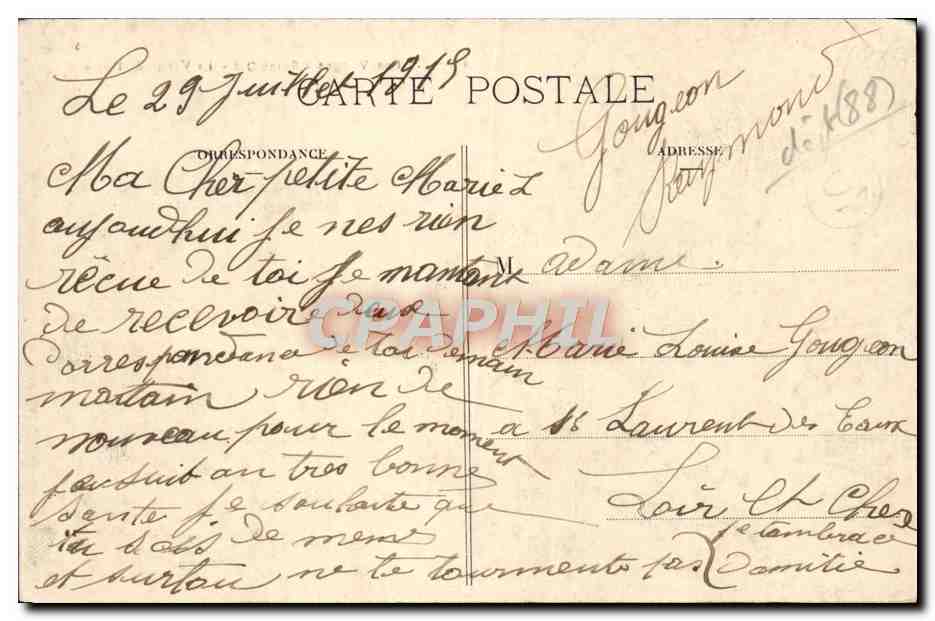 Le 29 Juillet 1915
CARTE POSTALE
Gougeon
Raymond
dét (88)
CORRESPONDANCE
ADRESSE
Ma Cher petite Marie L
aujourdhui Je nes rien
recue de toi Je mantant
de recevoire deux
Correspondance de toi demain
mattain rien de
nouveau pour le moment
Jensuit an tres bonne
sante Je souhaite que
tu sois de meme
et surtou ne te tourmente pas
Je tambrace
Damitie
M adame
Marie Louise Gougeon
a St Laurent des Eaux
Loir Et Cher
CPAPHIL